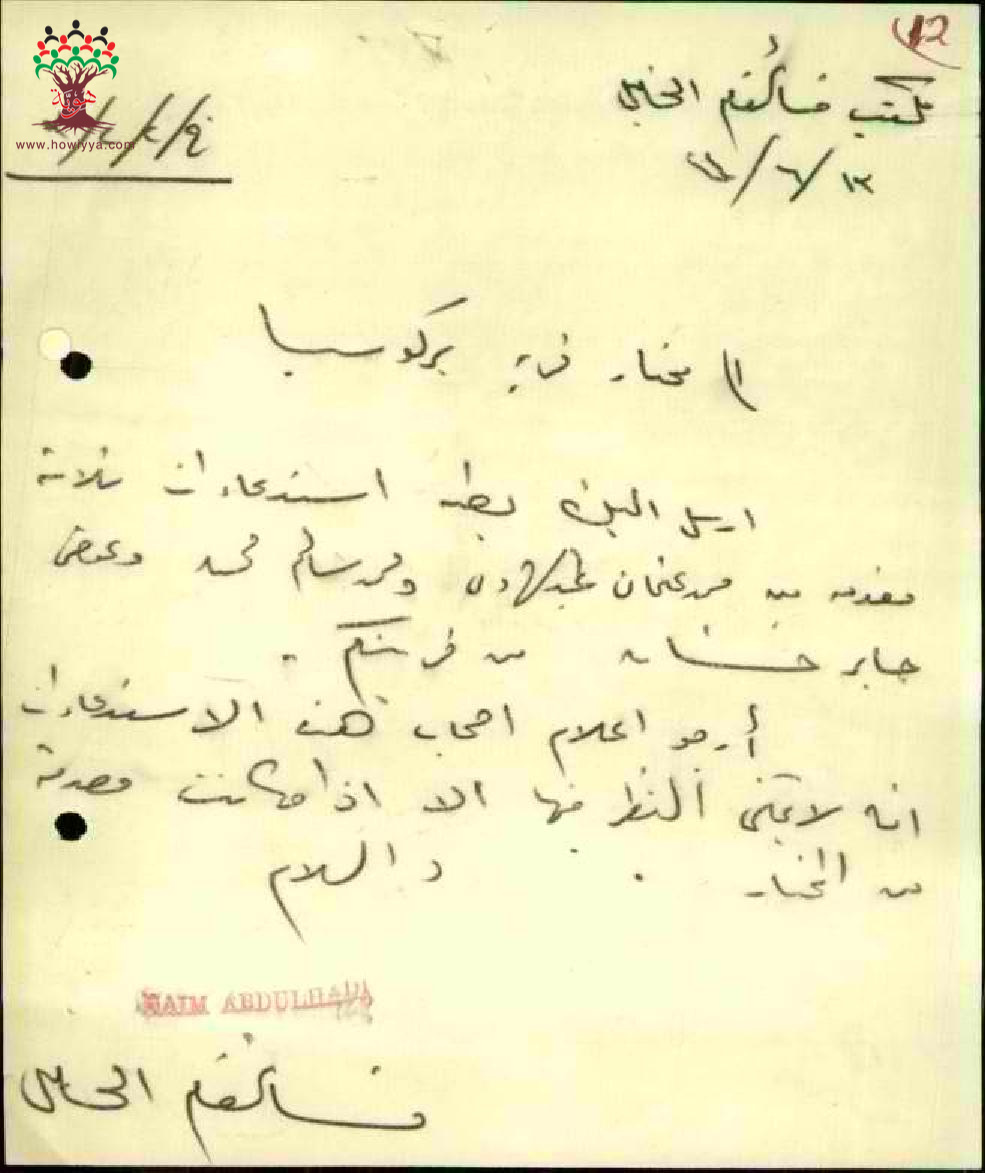 12
مكتب قائمقام الخليل
www.howiyya.com
هوية
مختار قرية بركوسيا
ارسل اليكم بطيه استدعاءات ثلاثة
مقدمه من محمد عثمان عبدالهادي ومحمد سالم محمد وعوض
جابر حسان من قريتكم .
أرجو اعلام اصحاب هذه الاستدعاءات
انه لا يمكنني النظر فيها الا اذا كانت مصدقة
من المختار . والسلام
NAIM ABDULHADI
قائمقام الخليل